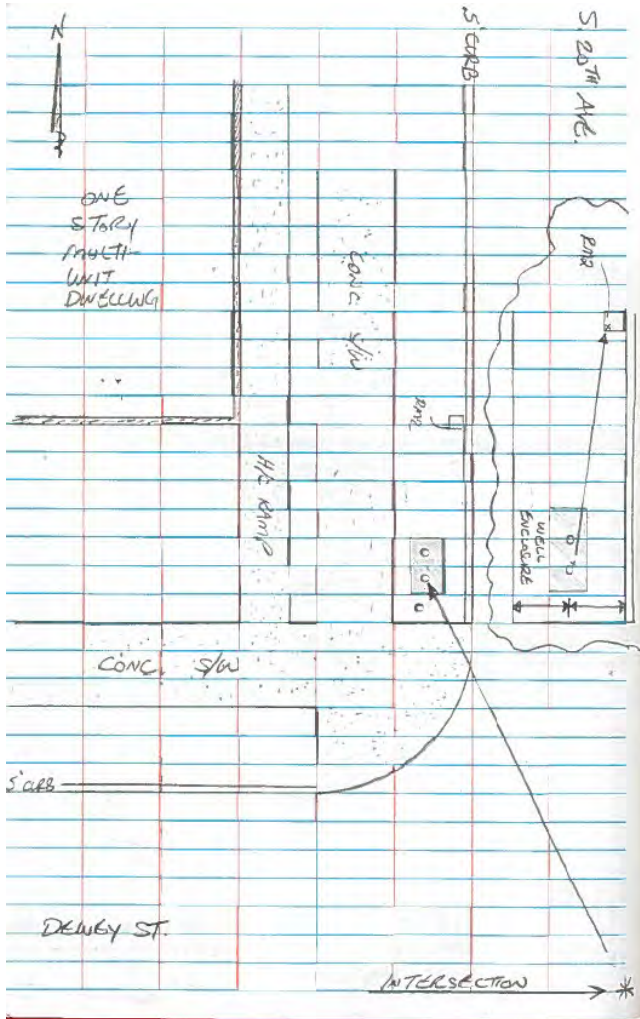 N
S'CURB
S. 20TH AVE.
ONE
STORY
MULTI-
UNIT
DWELLING
CONC. S/W
H/C RAMP
WELL
ENCLOSURE
CONC. S/W
S'CURB
DEWEY ST.
INTERSECTION